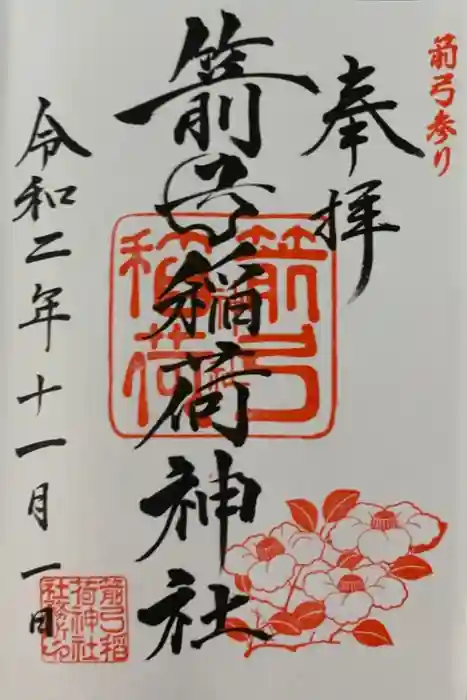 箭弓参り
奉拝
箭弓稲荷神社
令和二年十一月一日
箭弓稲荷
箭弓稲荷神社社務所之印